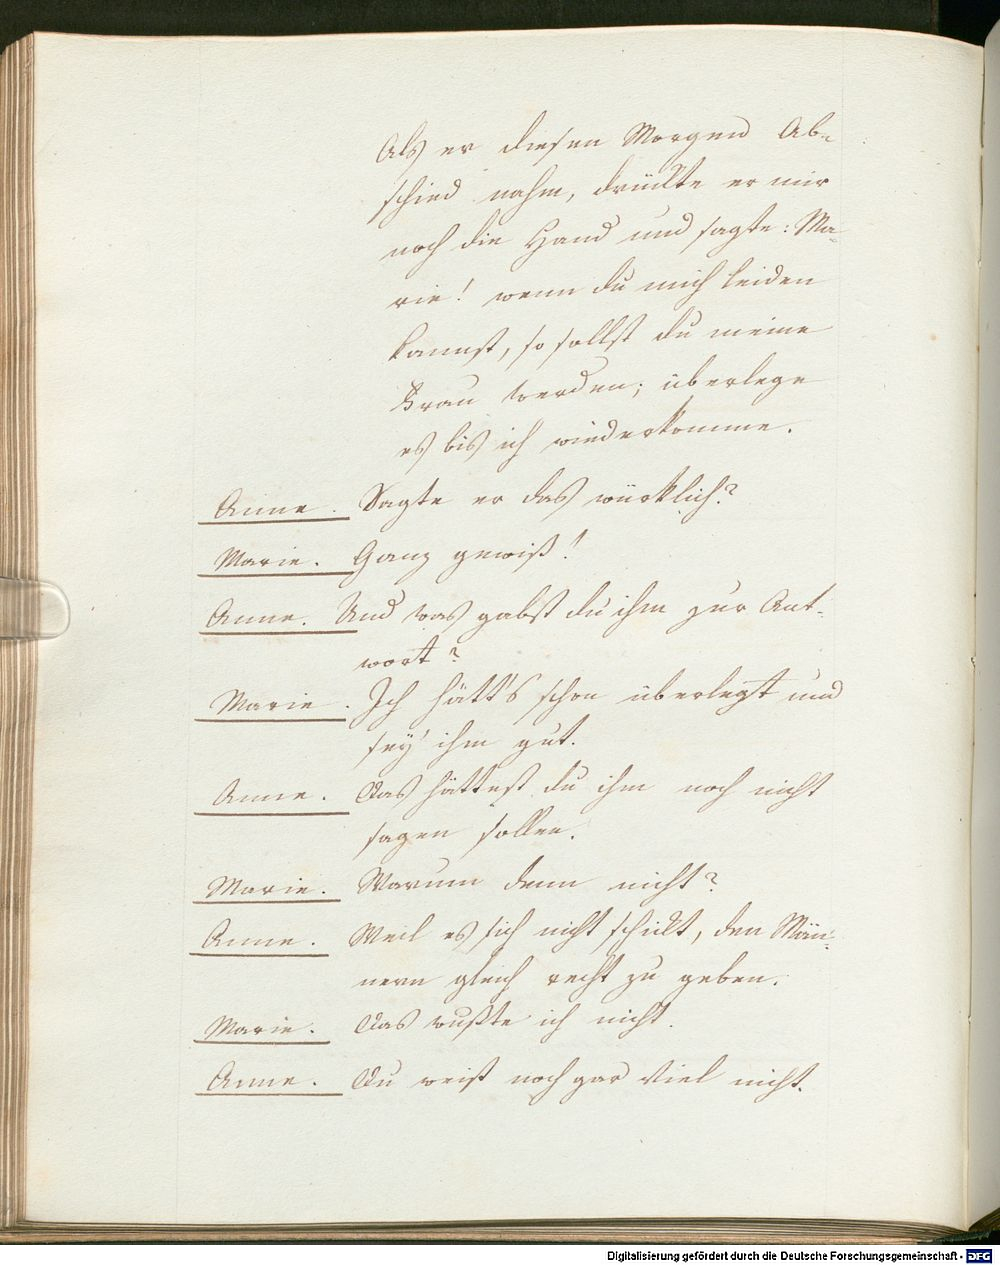 Als er diesen Morgen Ab-
schied nahm, drückte er mir
noch die Hand und sagte: Ma-
rie! wenn du mich leiden
kannst, so sollst du meine
Frau werden; überlege
es bis ich wiederkomme.
Anne. Sagte er das würklich?
Marie. Ganz gewiß!
Anne. Und was gabst du ihm zur Ant-
wort?
Marie. Ich hätt's schon überlegt und
sey' ihm gut.
Anne. Das hättest du ihm noch nicht
sagen sollen.
Marie. Warum denn nicht?
Anne. Weil es sich nicht schickt, den Män-
nern gleich recht zu geben.
Marie. Das wußte ich nicht.
Anne. Du weist noch gar viel nicht.
Digitalisierung gefördert durch die Deutsche Forschungsgemeinschaft - DFG